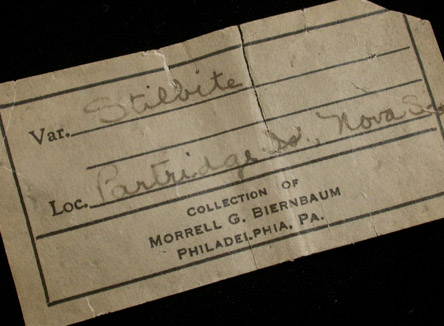 Var. Stilbite
Loc. Partridge Is., Nova
COLLECTION OF
MORRELL G. BIERNBAUM
PHILADELPHIA, PA.